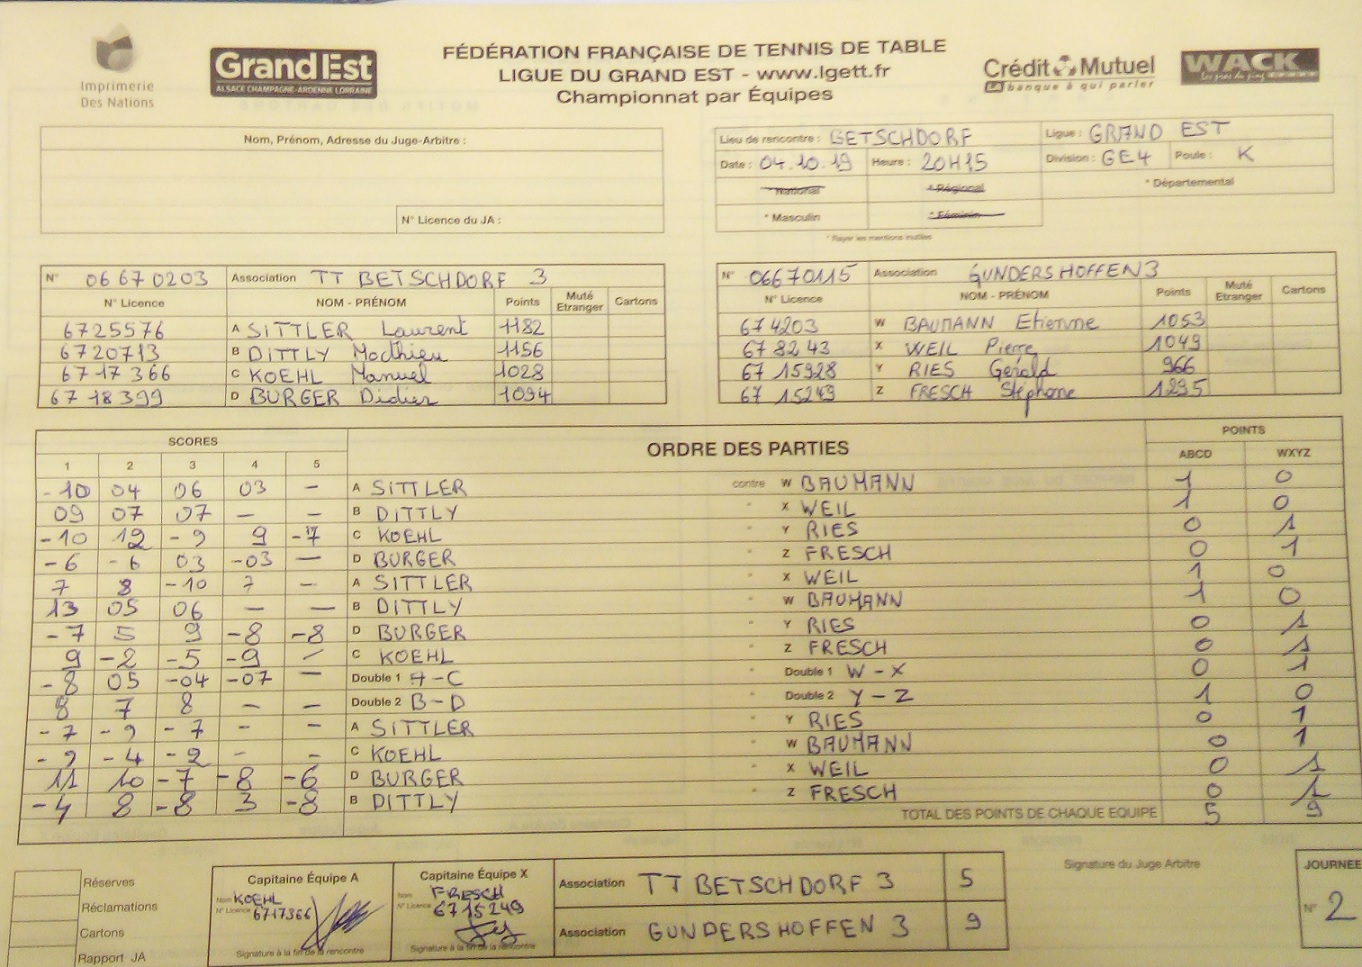 Imprimerie
Des Nations
GrandEst
ALSACE CHAMPAGNE-ARDENNE LORRAINE
FÉDÉRATION FRANÇAISE DE TENNIS DE TABLE
LIGUE DU GRAND EST - www.lgett.fr
Championnat par Équipes
Crédit Mutuel
LA banque à qui parler
WACK
Nom, Prénom, Adresse du Juge-Arbitre :
N° Licence du JA :
Lieu de rencontre : BETSCHDORF Ligue : GRAND EST
Date : 04.10.19 Heure : 20H15 Division : GE4 Poule : K
* National * Régional * Départemental
* Masculin * Féminin
* Rayer les mentions inutiles
N° 06670203 Association TT BETSCHDORF 3
N° Licence NOM - PRÉNOM Points Muté Etranger Cartons
6725576 A SITTLER Laurent 1182
6720713 B DITTLY Matthieu 1156
6717366 C KOEHL Manuel 1028
6718399 D BURGER Didier 1094
N° 06670115 Association GUNDERSHOFFEN 3
N° Licence NOM - PRÉNOM Points Muté Etranger Cartons
674203 W BAUMANN Etienne 1053
678243 X WEIL Pierre 1049
6715928 Y RIES Gérald 966
6715249 Z FRESCH Stéphane 1295
SCORES ORDRE DES PARTIES POINTS
1 2 3 4 5 ABCD WXYZ
-10 04 06 03 - A SITTLER contre W BAUMANN 1 0
09 07 07 - - B DITTLY " X WEIL 1 0
-10 12 -9 9 -7 C KOEHL " Y RIES 0 1
-6 -6 03 -03 - D BURGER " Z FRESCH 0 1
7 8 -10 7 - A SITTLER " X WEIL 1 0
13 05 06 - - B DITTLY " W BAUMANN 1 0
-7 5 9 -8 -8 D BURGER " Y RIES 0 1
9 -2 -5 -9 / C KOEHL " Z FRESCH 0 1
-8 05 -04 -07 - Double 1 A-C " Double 1 W-X 0 1
8 7 8 - - Double 2 B-D " Double 2 Y-Z 1 0
-7 -9 -7 - - A SITTLER " Y RIES 0 1
-9 -4 -2 - - C KOEHL " W BAUMANN 0 1
11 10 -7 -8 -6 D BURGER " X WEIL 0 1
-4 8 -8 3 -8 B DITTLY " Z FRESCH 0 1
TOTAL DES POINTS DE CHAQUE EQUIPE 5 9
Réserves
Réclamations
Cartons
Rapport JA
Capitaine Équipe A
Nom KOEHL
N° Licence 6717366
Signature à la fin de la rencontre
Capitaine Équipe X
Nom FRESCH
N° Licence 6715249
Signature à la fin de la rencontre
Association TT BETSCHDORF 3 5
Association GUNDERSHOFFEN 3 9
Signature du Juge Arbitre
JOURNEE
N° 2